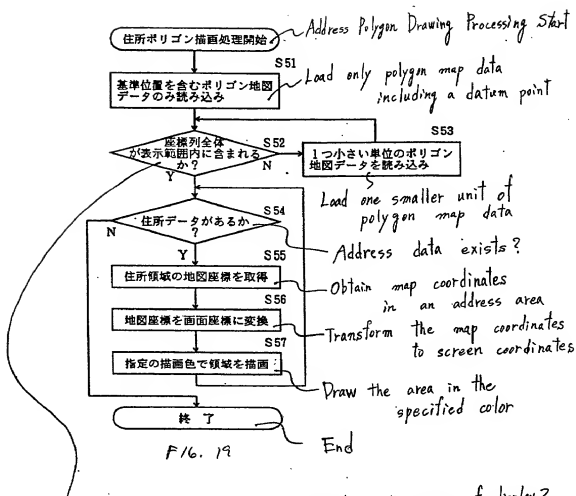 住所ポリゴン描画処理開始
Address Polygon Drawing Processing Start
S51
基準位置を含むポリゴン地図
データのみ読み込み
Load only polygon map data
including a datum point
座標列全体
が表示範囲内に含まれる
か?
S52
Y
N
S53
1つ小さい単位のポリゴン
地図データを読み込み
Load one smaller unit of
polygon map data
住所データがあるか
?
S54
N
Y
Address data exists?
S55
住所領域の地図座標を取得
Obtain map coordinates
in an address area
S56
地図座標を画面座標に変換
Transform the map coordinates
to screen coordinates
S57
指定の描画色で領域を描画
Draw the area in the
specified color
終了
End
FIG. 19